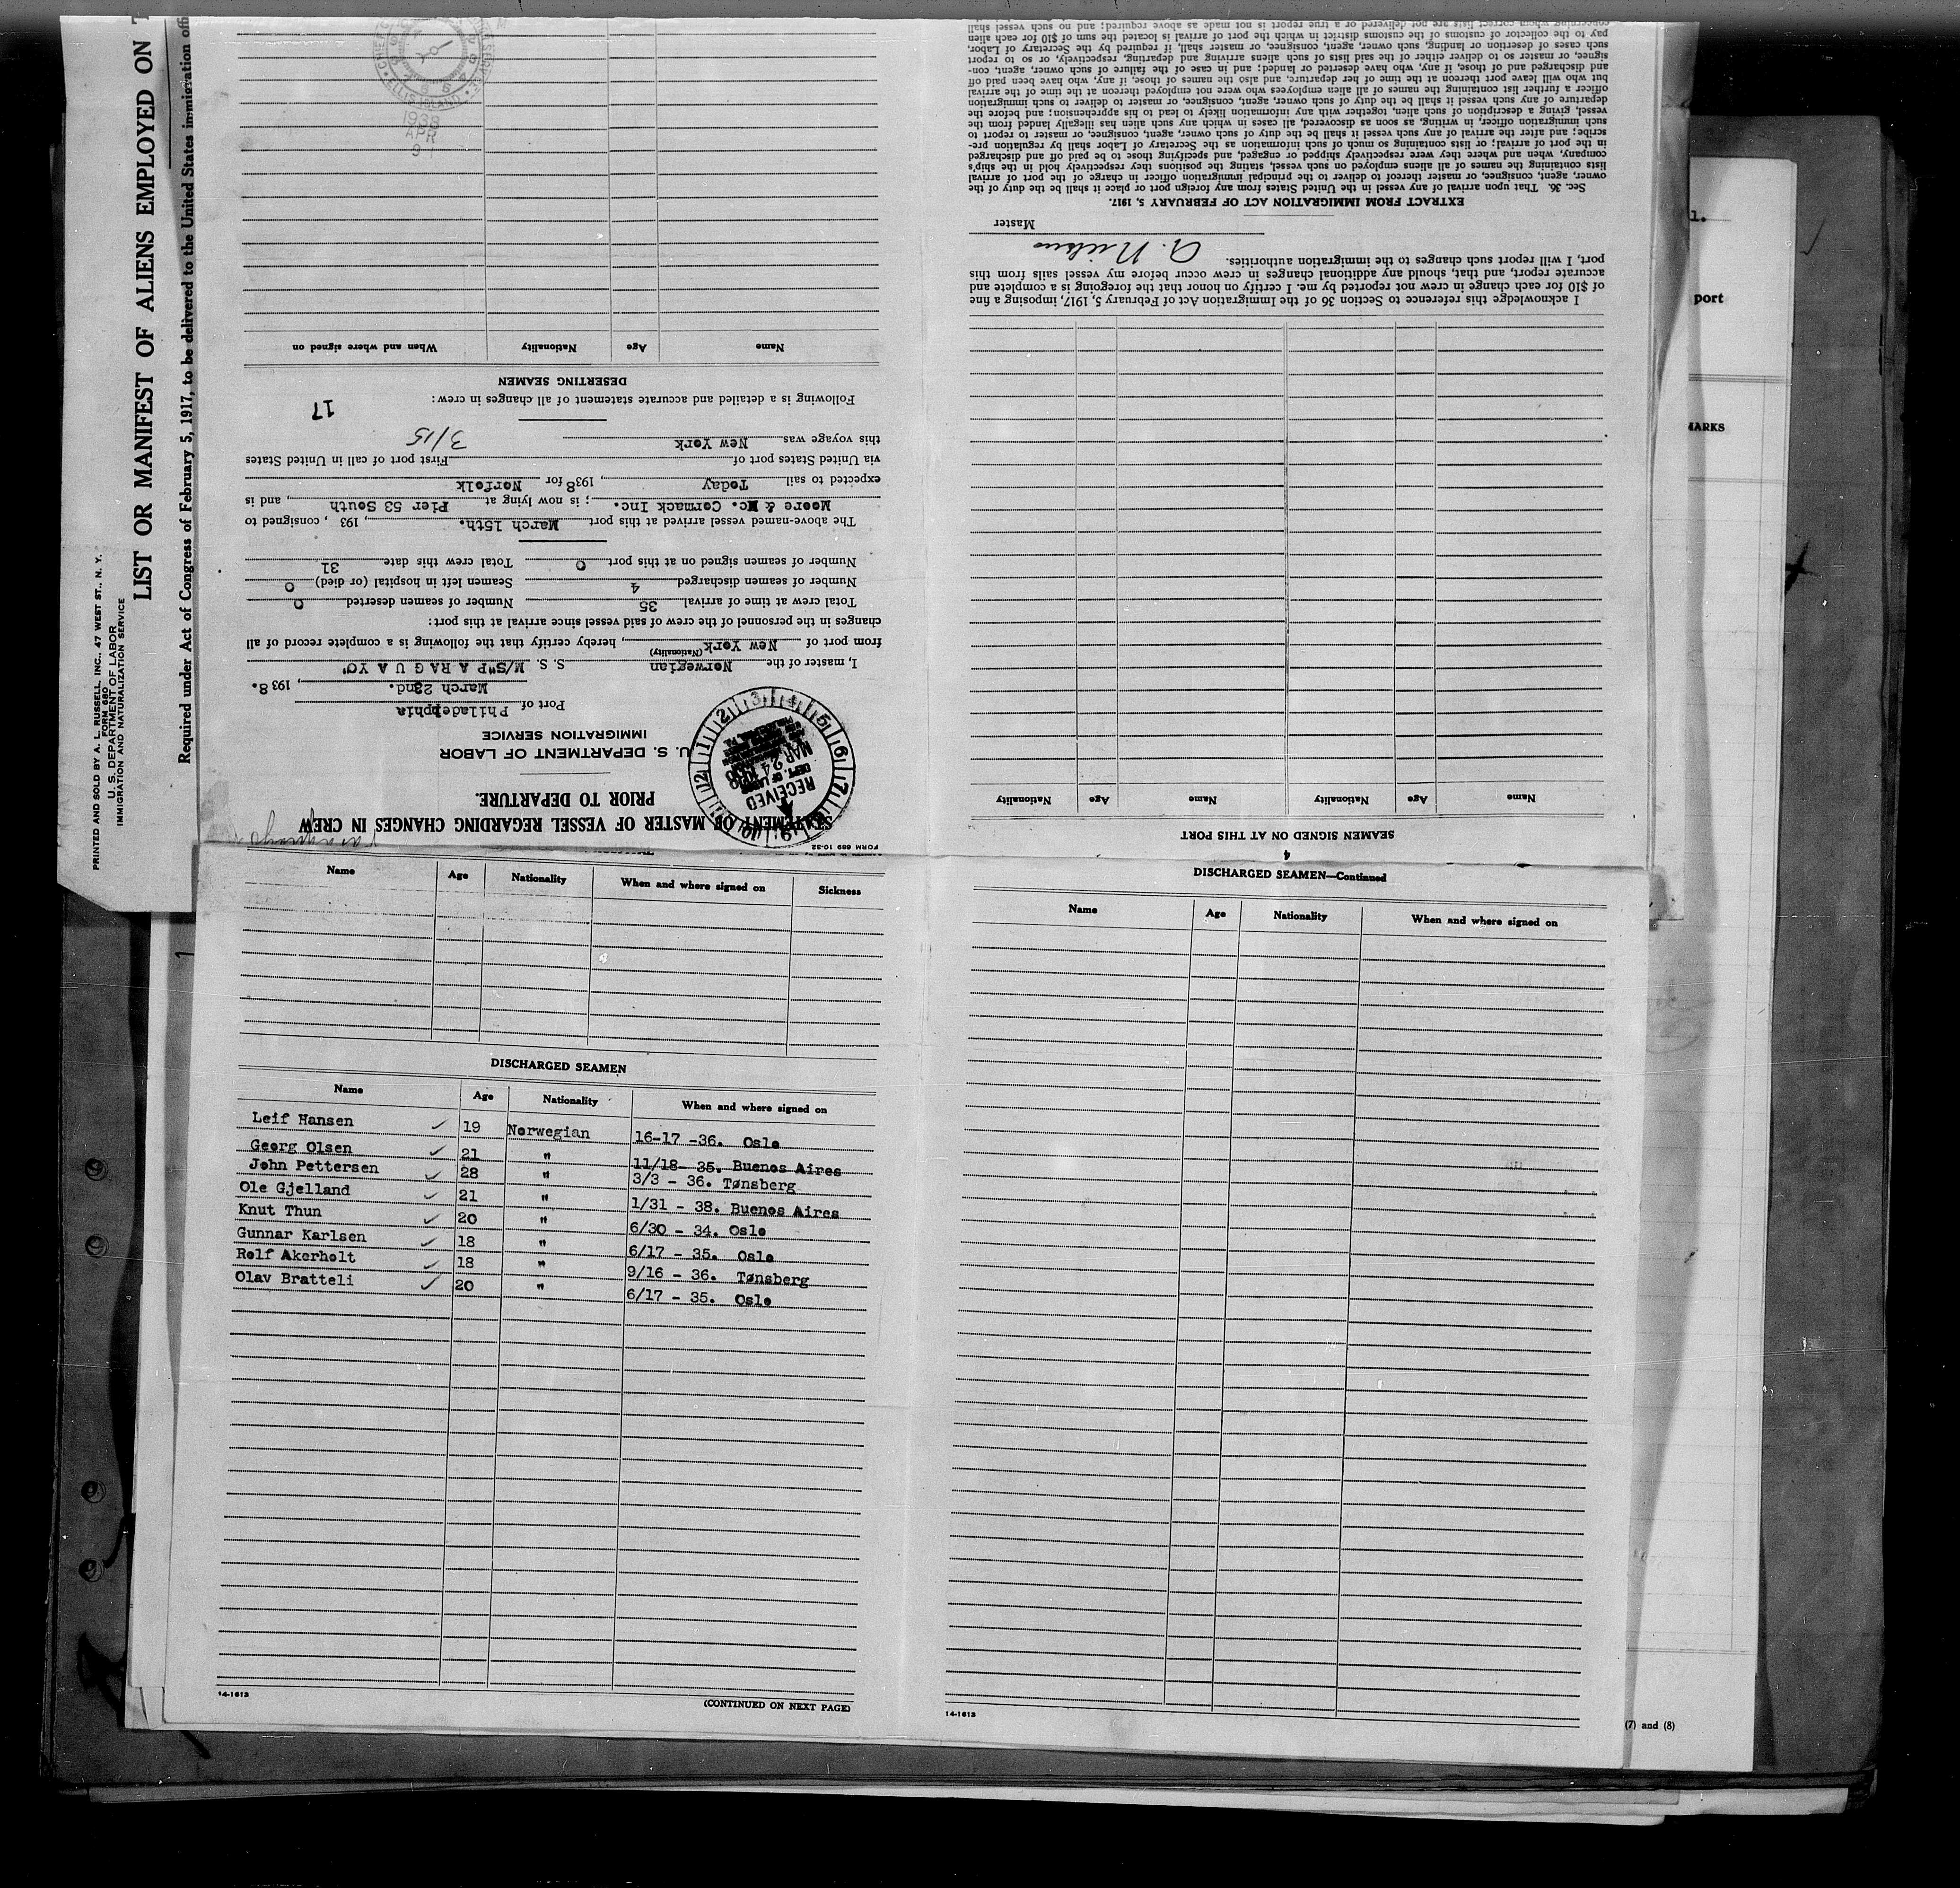 PRINTED AND SOLD BY A. L. RUSSELL, INC., 47 WEST ST., N. Y.
FORM 680
U. S. DEPARTMENT OF LABOR
IMMIGRATION AND NATURALIZATION SERVICE
LIST OR MANIFEST OF ALIENS EMPLOYED ON
Required under Act of Congress of February 5, 1917, to be delivered to the United States immigration
FORM 689 10-32
STATEMENT OF MASTER OF VESSEL REGARDING CHANGES IN CREW
PRIOR TO DEPARTURE.
U. S. DEPARTMENT OF LABOR
IMMIGRATION SERVICE
RECEIVED
DEPT. OF LABOR
MAR 24 1938
Port of Philadelphia
March 22nd. , 1938.
I, master of the Norwegian S. S. M/S"P A R A G U A Y O"
(Nationality)
from port of New York , hereby certify that the following is a complete record of all
changes in the personnel of the crew of said vessel since arrival at this port:
Total crew at time of arrival 35 Number of seamen deserted 0
Number of seamen discharged 4 Seamen left in hospital (or died) 0
Number of seamen signed on at this port 0 Total crew this date 31
The above-named vessel arrived at this port March 15th. , 193 , consigned to
Moore & Mc. Cormack Inc. ; is now lying at Pier 53 South , and is
expected to sail Today , 1938 for Norfolk
via United States port of First port of call in United States
this voyage was New York 3/15
Following is a detailed and accurate statement of all changes in crew:
17
DESERTING SEAMEN
Name Age Nationality When and where signed on
ELLIS ISLAND
1938
APR
9
Name Age Nationality When and where signed on Sickness
DISCHARGED SEAMEN
Name Age Nationality When and where signed on
Leif Hansen ✓ 19 Norwegian 16-17 -36. Oslo
Georg Olsen ✓ 21 " 11/18- 35. Buenos Aires
John Pettersen ✓ 28 " 3/3 - 36. Tønsberg
Ole Gjelland ✓ 21 " 1/31 - 38. Buenos Aires
Knut Thun ✓ 20 " 6/30 - 34. Oslo
Gunnar Karlsen ✓ 18 " 6/17 - 35. Oslo
Rolf Akerholt ✓ 18 " 9/16 - 36. Tønsberg
Olav Bratteli ✓ 20 " 6/17 - 35. Oslo
14-1613
(CONTINUED ON NEXT PAGE)
DISCHARGED SEAMEN—Continued
Name Age Nationality When and where signed on
14-1613
4
SEAMEN SIGNED ON AT THIS PORT
Name Age Nationality Name Age Nationality
I acknowledge this reference to Section 36 of the Immigration Act of February 5, 1917, imposing a fine
of $10 for each change in crew not reported by me. I certify on honor that the foregoing is a complete and
accurate report, and that, should any additional changes in crew occur before my vessel sails from this
port, I will report such changes to the immigration authorities.
Master
EXTRACT FROM IMMIGRATION ACT OF FEBRUARY 5, 1917.
Sec. 36. That upon arrival of any vessel in the United States from any foreign port or place it shall be the duty of the
owner, agent, consignee, or master thereof to deliver to the principal immigration officer in charge of the port of arrival
lists containing the names of all aliens employed on such vessel, stating the positions they respectively hold in the ship's
company, when and where they were respectively shipped or engaged, and specifying those to be paid off and discharged
in the port of arrival; or lists containing so much of such information as the Secretary of Labor shall by regulation pre-
scribe; and after the arrival of any such vessel it shall be the duty of such owner, agent, consignee, or master to report to
such immigration officer, in writing, as soon as discovered, all cases in which any such alien has illegally landed from the
vessel, giving a description of such alien, together with any information likely to lead to his apprehension; and before the
departure of any such vessel it shall be the duty of such owner, agent, consignee, or master to deliver to such immigration
officer a further list containing the names of all alien employees who were not employed thereon at the time of the arrival
but who will leave port thereon at the time of her departure, and also the names of those, if any, who have been paid off
and discharged and of those, if any, who have deserted or landed; and in case of the failure of such owner, agent, con-
signee, or master so to deliver either of the said lists of such aliens arriving and departing, respectively, or so to report
such cases of desertion or landing, such owner, agent, consignee, or master shall, if required by the Secretary of Labor,
pay to the collector of customs of the customs district in which the port of arrival is located the sum of $10 for each alien
concerning whom correct lists are not delivered or a true report is not made as above required; and no such vessel shall
1.
port
MARKS
(7) and (8)